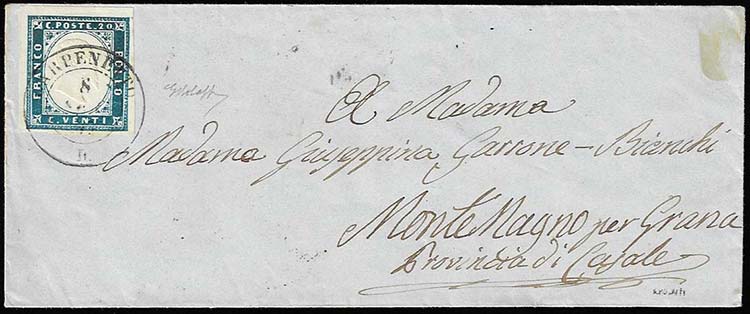 C. POSTE. 20
FRANCO
BOLLO
C. VENTI
8
A Madama
Madama Giuseppina Garrone-Bianchi
MonteMagno per Grana
Provincia di Casale